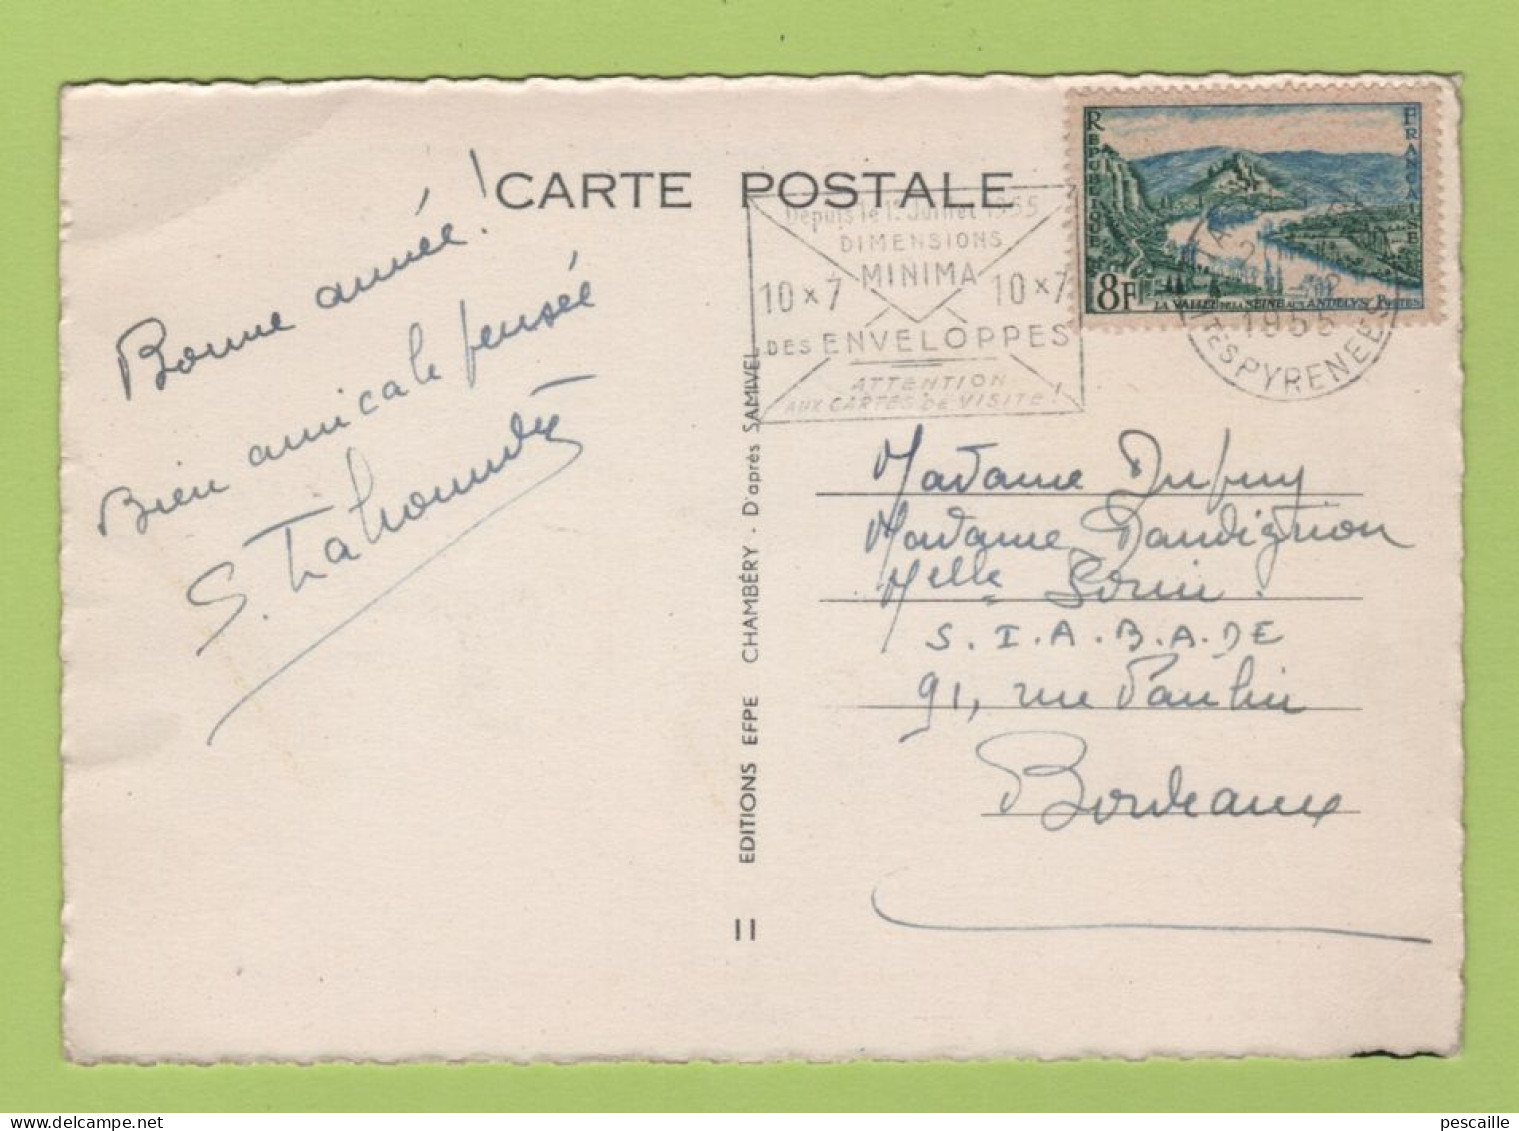 CARTE POSTALE
Bonne année !
Bien amicale pensée
RÉPUBLIQUE
FRANÇAISE
8F
LA VALLÉE DE LA SEINE AUX ANDELYS POSTES
Depuis le 1er Juillet 1955
DIMENSIONS
MINIMA
10 x 7 10 x 7
DES ENVELOPPES
ATTENTION
AUX CARTES DE VISITE !
1955
TES PYRENEES
EDITIONS EFPE CHAMBÉRY - D'après SAMIVEL
II
Madame Dupuy
Madame Dandignon
Melle Sorin.
S.I.A.B.A.DE
91, rue Paulin
Bordeaux
pescaille